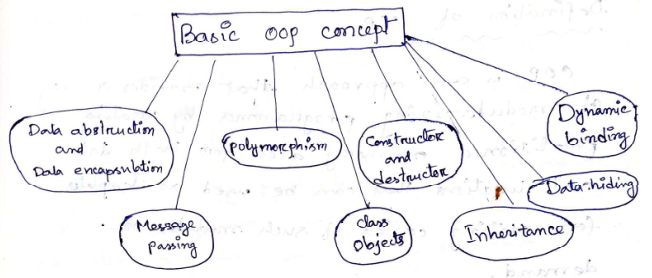 Basic oop concept
Data abstraction
and
Data encapsulation
Message
passing
polymorphism
class
Objects
Constructor
and
destructor
Inheritance
Data-hiding
Dynamic
binding